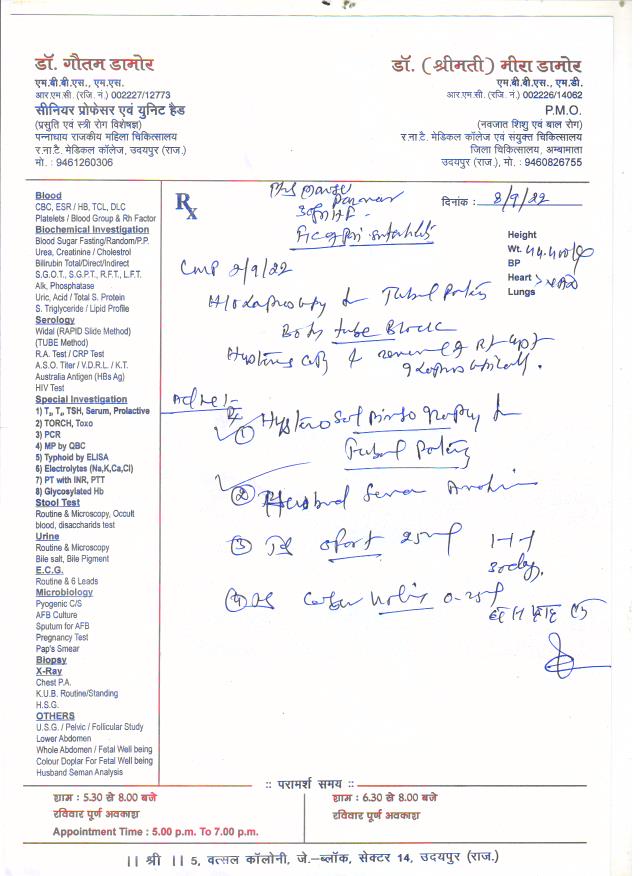 डॉ. गौतम डामोर
एम.बी.बी.एस., एम.एस.
आर.एम.सी. (रजि. नं.) 002227/12773
सीनियर प्रोफेसर एवं युनिट हैड
(प्रसुति एवं स्त्री रोग विशेषज्ञ)
पन्नाधाय राजकीय महिला चिकित्सालय
र.ना.टै. मेडिकल कॉलेज, उदयपुर (राज.)
मो. : 9461260306
डॉ. (श्रीमती) मीरा डामोर
एम.बी.बी.एस., एम.डी.
आर.एम.सी. (रजि. नं.) 002226/14062
P.M.O.
(नवजात शिशु एवं बाल रोग)
र.ना.टै. मेडिकल कॉलेज एवं संयुक्त चिकित्सालय
जिला चिकित्सालय, अम्बामाता
उदयपुर (राज.), मो. : 9460826755
Blood
CBC, ESR / HB, TCL, DLC
Platelets / Blood Group & Rh Factor
Biochemical Investigation
Blood Sugar Fasting/Random/P.P.
Urea, Creatinine / Cholestrol
Bilirubin Total/Direct/Indirect
S.G.O.T., S.G.P.T., R.F.T., L.F.T.
Alk, Phosphatase
Uric, Acid / Total S. Protein
S. Triglyceride / Lipid Profile
Serology
Widal (RAPID Slide Method)
(TUBE Method)
R.A. Test / CRP Test
A.S.O. Titer / V.D.R.L. / K.T.
Australia Antigen (HBs Ag)
HIV Test
Special Investigation
1) T₃, T₄ TSH, Serum, Prolactive
2) TORCH, Toxo
3) PCR
4) MP by QBC
5) Typhoid by ELISA
6) Electrolytes (Na,K,Ca,Cl)
7) PT with INR, PTT
8) Glycosylated Hb
Stool Test
Routine & Microscopy, Occult
blood, disaccharids test
Urine
Routine & Microscopy
Bile salt, Bile Pigment
E.C.G.
Routine & 6 Leads
Microbiology
Pyogenic C/S
AFB Culture
Sputum for AFB
Pregnancy Test
Pap's Smear
Biopsy
X-Ray
Chest P.A.
K.U.B. Routine/Standing
H.S.G.
OTHERS
U.S.G. / Pelvic / Follicular Study
Lower Abdomen
Whole Abdomen / Fetal Well being
Colour Doplar For Fetal Well being
Husband Seman Analysis
Rx
दिनांक : 8/9/22
Height
Wt. 44.400
BP
Heart
Lungs
CMP 2/9/22
Tubal
Both tube Block
①
Tubal
② Husband Semen
③ 25 1-1-1
30 days
④ 0.25
:: परामर्श समय ::
शाम : 5.30 से 8.00 बजे
रविवार पूर्ण अवकाश
Appointment Time : 5.00 p.m. To 7.00 p.m.
शाम : 6.30 से 8.00 बजे
रविवार पूर्ण अवकाश
|| श्री || 5, वत्सल कॉलोनी, जे.–ब्लॉक, सेक्टर 14, उदयपुर (राज.)